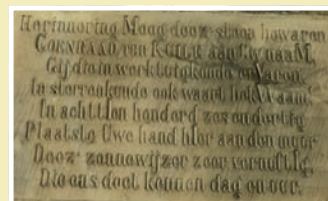 Herinnering Moog door steen bewaren
COENRAAD TER KUILE aan Uw naaM,
Gij die in werktuigkunde en Varen
In sterrenkunde ook waart bekWaam!
In achttien honderd zes en dertig
Plaatste Uwe hand hier aan den muur
Deez' zonnewijzer zeer vernuftig,
Die ons doet kennen dag en uur.